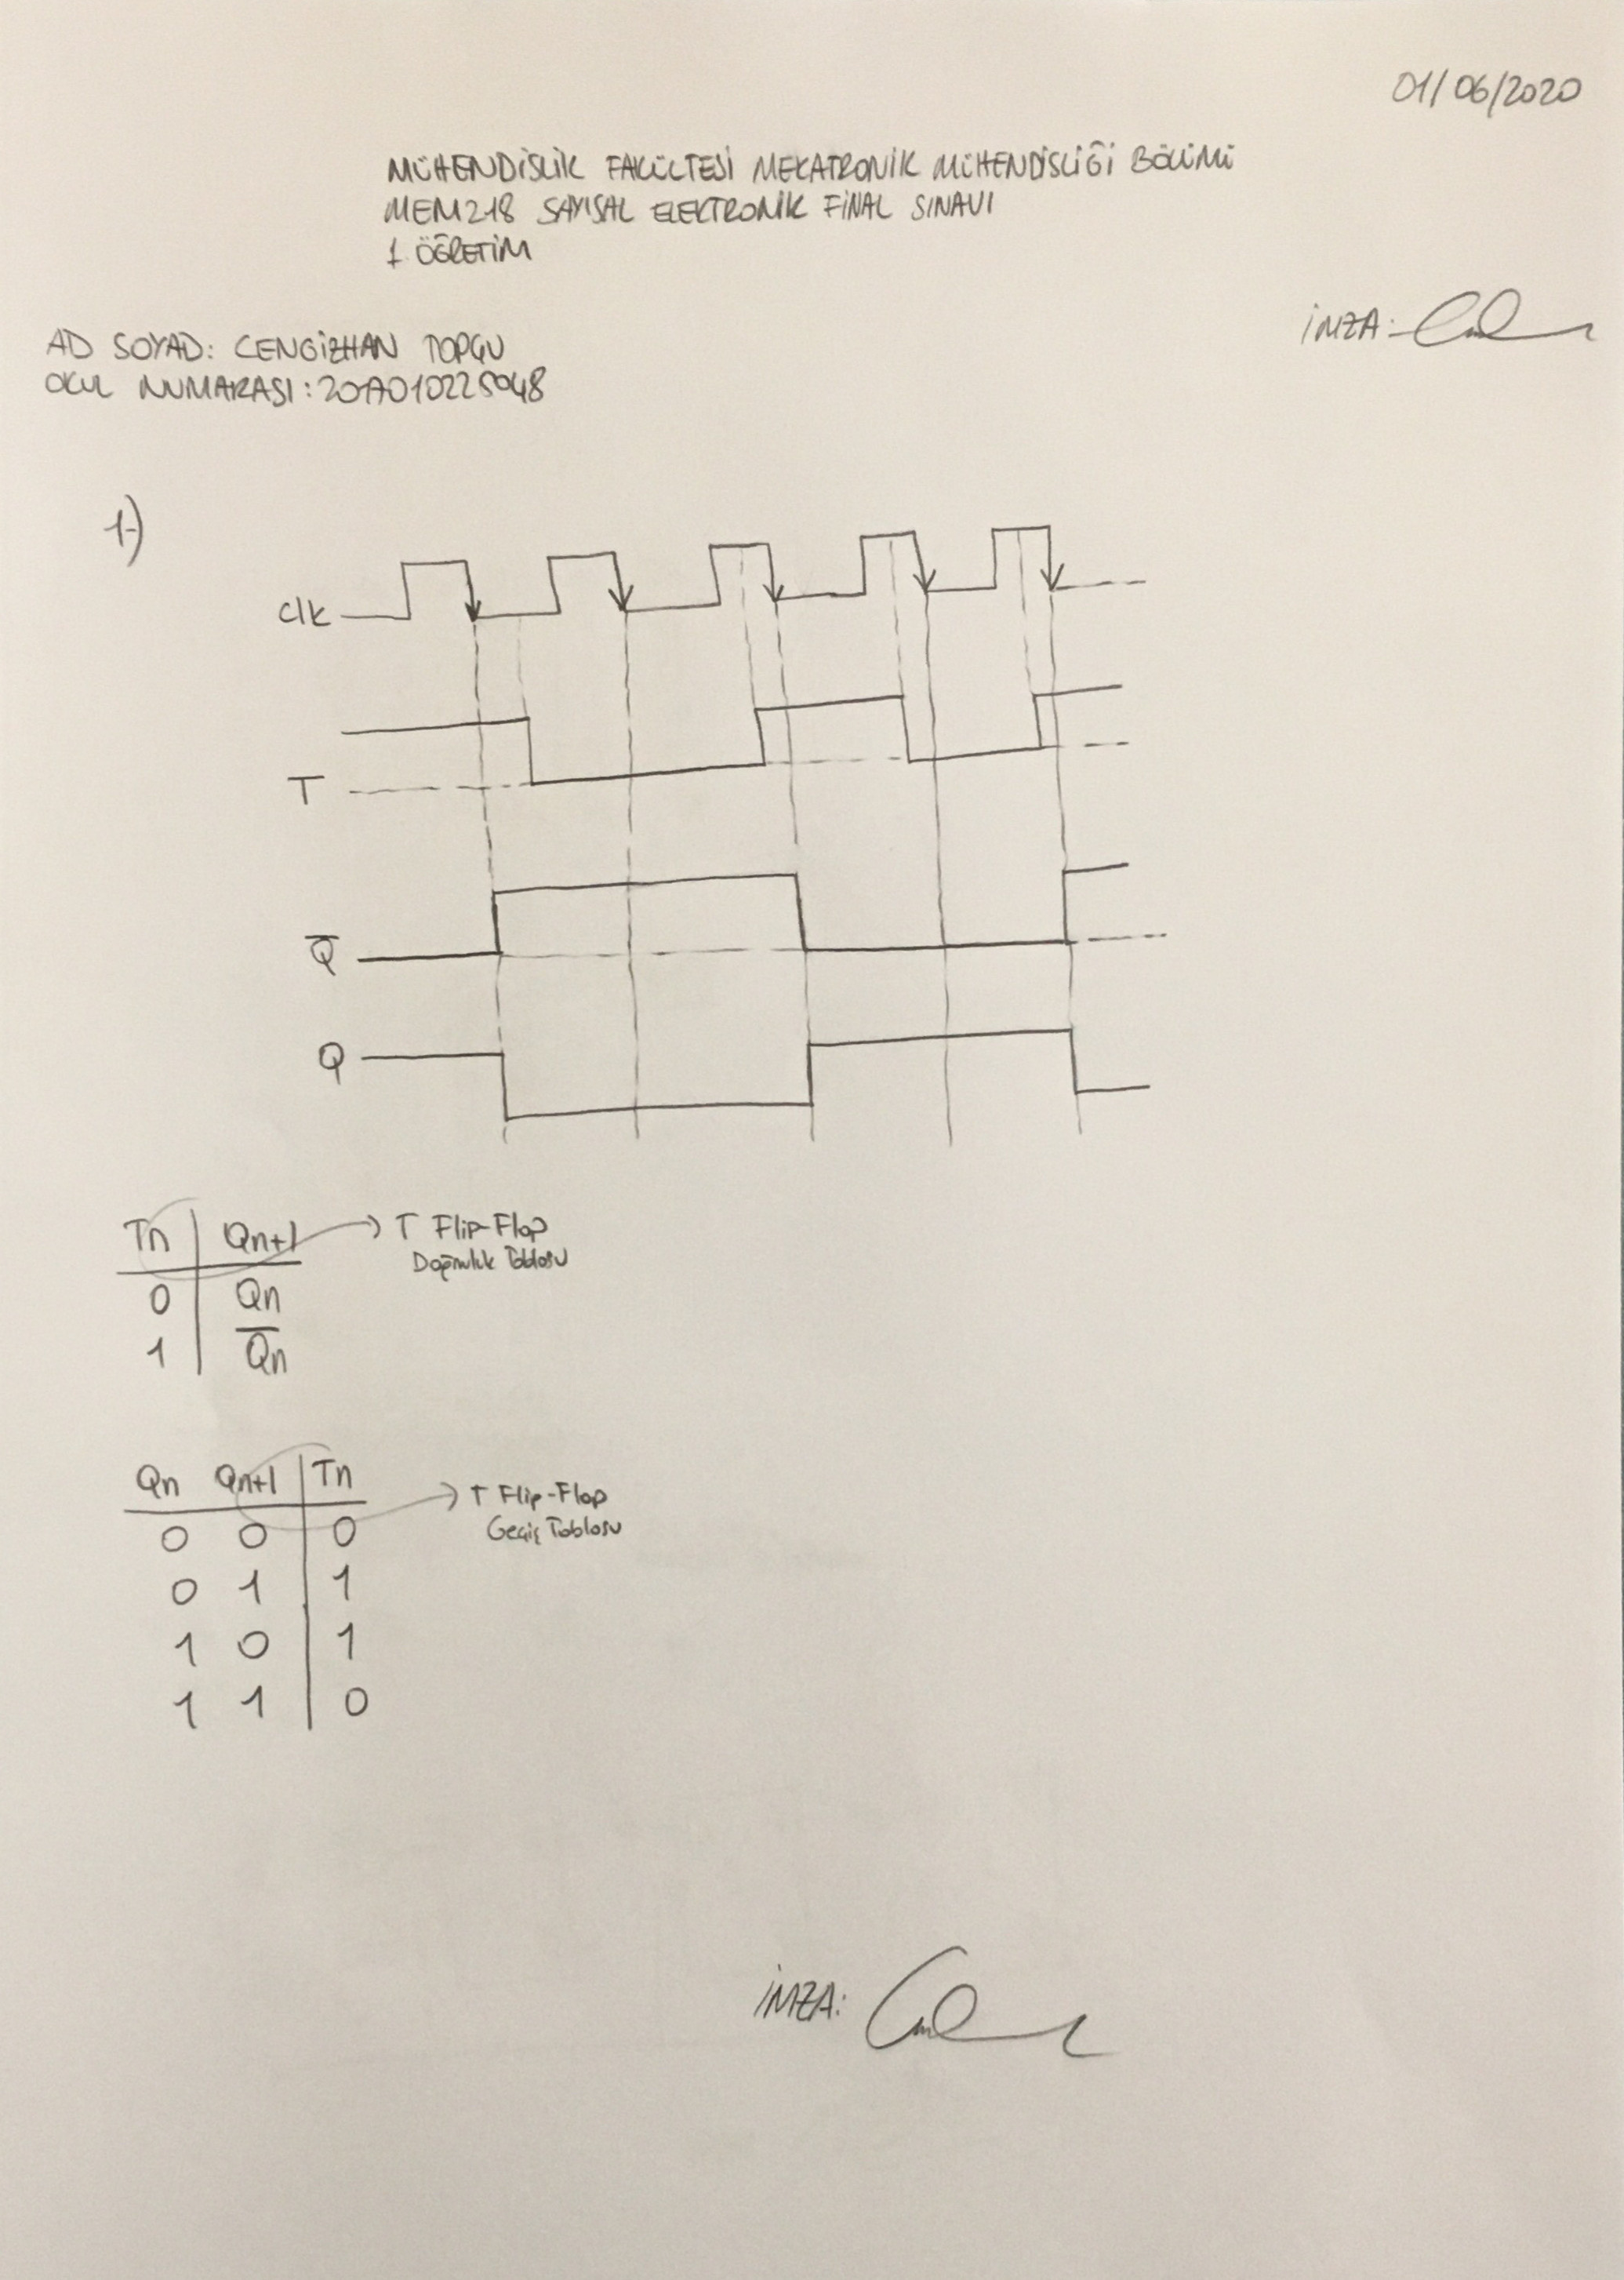 01/06/2020
MÜHENDİSLİK FAKÜLTESİ MEKATRONİK MÜHENDİSLİĞİ BÖLÜMÜ
MEM218 SAYISAL ELEKTRONİK FİNAL SINAVI
1. ÖĞRETİM
İMZA:
AD SOYAD: CENGİZHAN TOPÇU
OKUL NUMARASI: 2017010225048
1-)
Clk
T
Q̅
Q
Tn Qn+1
→ T Flip-Flop
Doğruluk Tablosu
0 Qn
1 Q̅n
Qn Qn+1 Tn
→ T Flip-Flop
Geçiş Tablosu
0 0 0
0 1 1
1 0 1
1 1 0
İMZA: